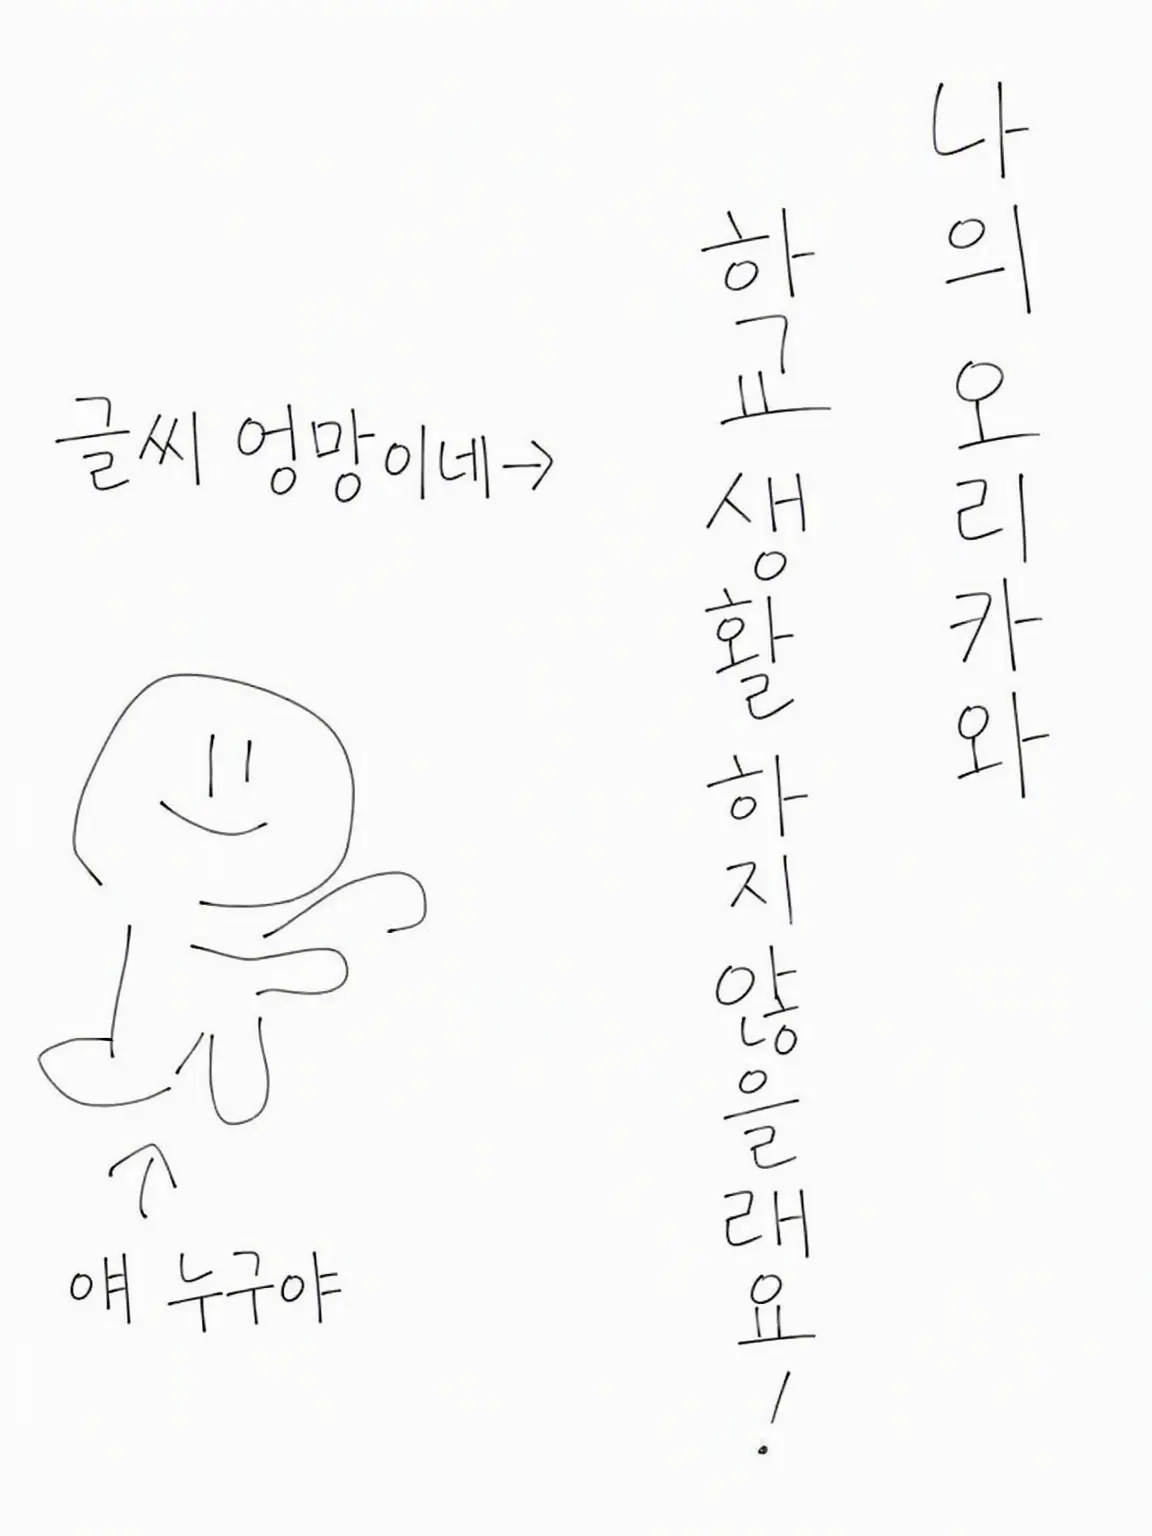 나의 오리카와
하교 생활 하지 않을래요!
글씨 엉망이네→
얘 누구야